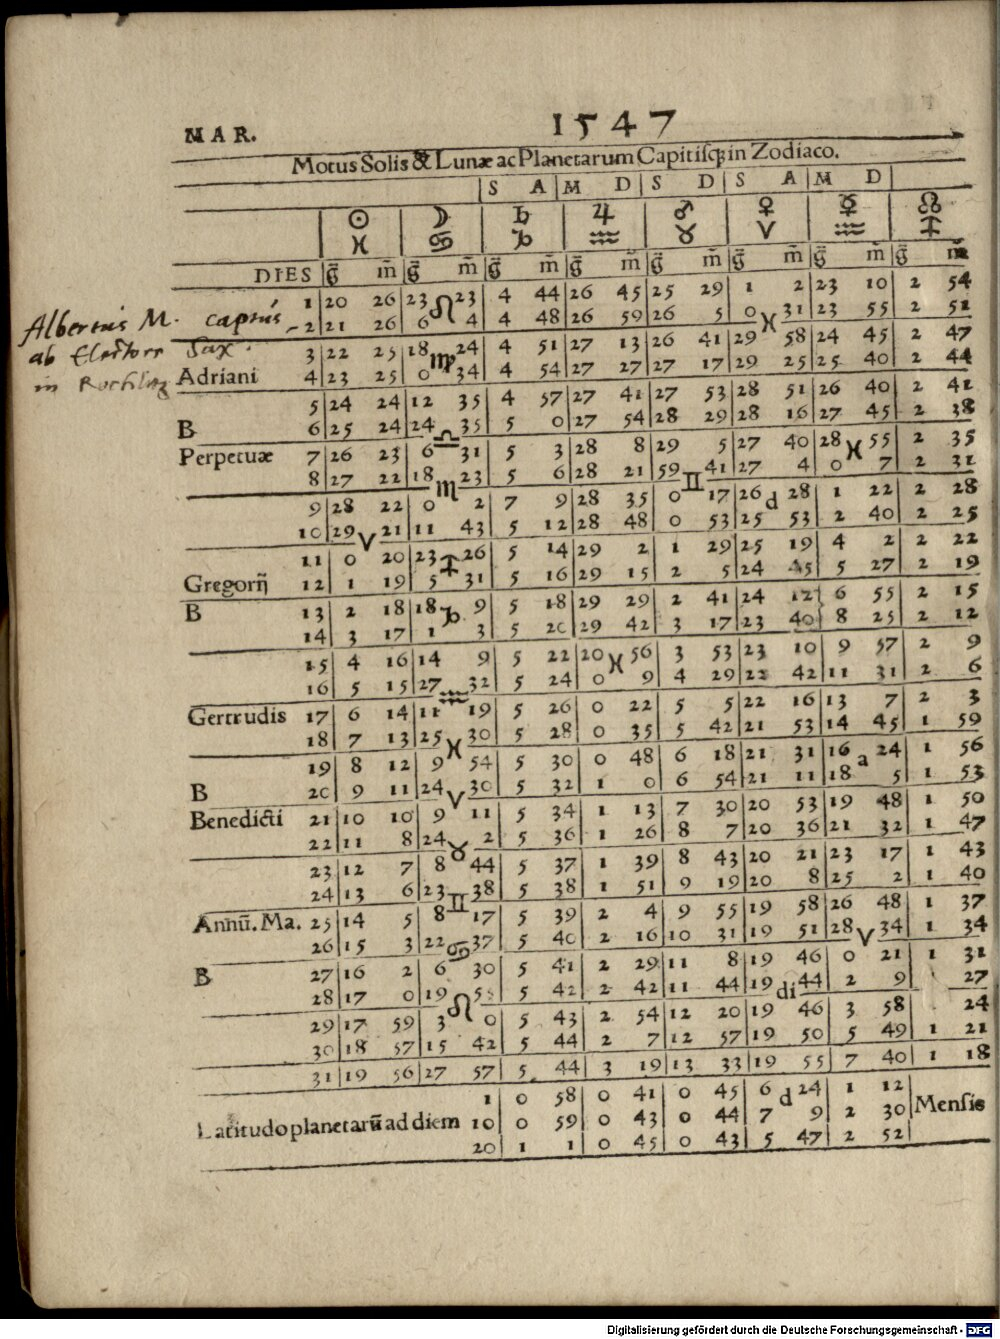 MAR. 1547
Motus Solis & Lunæ ac Planetarum Capitisq; in Zodiaco.
S A M D S D S A M D
☉ ☽ ♄ ♃ ♂ ♀ ☿ ☊
♓ ♋ ♑ ♒ ♉ ♈ ♒ ♐
DIES g̃ m̃ g̃ m̃ g̃ m̃ g̃ m̃ g̃ m̃ g̃ m̃ g̃ m̃ g̃ m̃
1 20 26 23 23 4 44 26 45 25 29 1 2 23 10 2 54
Albertus M. captus
2 21 26 6 ♌ 4 4 48 26 59 26 5 0 ♓ 31 23 55 2 51
ab Electore Sax.
3 22 25 18 24 4 51 27 13 26 41 29 58 24 45 2 47
in Rochlitz
Adriani 4 23 25 0 ♍ 34 4 54 27 27 27 17 29 25 25 40 2 44
5 24 24 12 35 4 57 27 41 27 53 28 51 26 40 2 41
B 6 25 24 24 ♎ 35 5 0 27 54 28 29 28 16 27 45 2 38
Perpetuæ 7 26 23 6 31 5 3 28 8 29 5 27 40 28 ♓ 55 2 35
8 27 22 18 ♏ 23 5 6 28 21 59 ♊ 41 27 4 0 7 2 31
9 28 22 0 2 7 9 28 35 0 17 26 d 28 1 22 2 28
10 29 ♈ 21 11 43 5 12 28 48 0 53 25 53 2 40 2 25
11 0 20 23 ♐ 26 5 14 29 2 1 29 25 19 4 2 2 22
Gregorij 12 1 19 5 31 5 16 29 15 2 5 24 45 5 27 2 19
B 13 2 18 18 ♑ 9 5 18 29 29 2 41 24 12 6 55 2 15
14 3 17 1 3 5 20 29 42 3 17 23 40 8 25 2 12
15 4 16 14 9 5 22 20 ♓ 56 3 53 23 10 9 57 2 9
16 5 15 27 ♒ 32 5 24 0 9 4 29 22 42 11 31 2 6
Gertrudis 17 6 14 11 19 5 26 0 22 5 5 22 16 13 7 2 3
18 7 13 25 ♓ 30 5 28 0 35 5 42 21 53 14 45 1 59
19 8 12 9 54 5 30 0 48 6 18 21 31 16 a 24 1 56
B 20 9 11 24 ♈ 30 5 32 1 0 6 54 21 11 18 5 1 53
Benedicti 21 10 10 9 11 5 34 1 13 7 30 20 53 19 48 1 50
22 11 8 24 ♉ 2 5 36 1 26 8 7 20 36 21 32 1 47
23 12 7 8 44 5 37 1 39 8 43 20 21 23 17 1 43
24 13 6 23 ♊ 38 5 38 1 51 9 19 20 8 25 2 1 40
Annũ. Ma. 25 14 5 8 17 5 39 2 4 9 55 19 58 26 48 1 37
26 15 3 22 ♋ 37 5 40 2 16 10 31 19 51 28 ♈ 34 1 34
B 27 16 2 6 30 5 41 2 29 11 8 19 46 0 21 1 31
28 17 0 19 ♌ 5 42 2 42 11 44 19 di 44 2 9 27
29 17 59 3 0 5 43 2 54 12 20 19 46 3 58 24
30 18 57 15 42 5 44 2 7 12 57 19 50 5 49 1 21
31 19 56 27 57 5 44 3 19 13 33 19 55 7 40 1 18
1 0 58 0 41 0 45 6 d 24 1 12
Latitudo planetarũ ad diem 10 0 59 0 43 0 44 7 9 2 30 Mensis
20 1 1 0 45 0 43 5 47 2 52
Digitalisierung gefördert durch die Deutsche Forschungsgemeinschaft - DFG